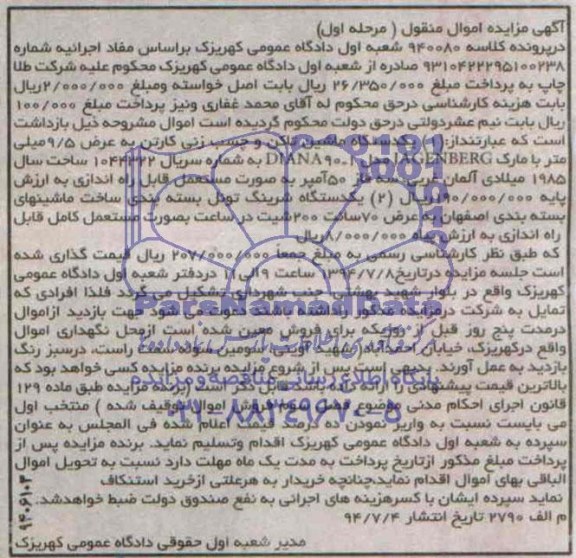 آگهی مزایده اموال منقول ( مرحله اول)
درپرونده کلاسه ۹۴۰۰۸۰ شعبه اول دادگاه عمومی کهریزک براساس مفاد اجرائیه شماره
۹۳۱۰۴۲۲۲۹۵۱۰۰۲۳۸ صادره از شعبه اول دادگاه عمومی کهریزک محکوم علیه شرکت طلا
چاپ به پرداخت مبلغ ۲۶/۳۵۰/۰۰۰ ریال بابت اصل خواسته ومبلغ ۲/۰۰۰/۰۰۰ریال
بابت هزینه کارشناسی درحق محکوم له آقای محمد غفاری ونیز پرداخت مبلغ ۱۰۰/۰۰۰
ریال بابت نیم عشردولتی درحق دولت محکوم گردیده است اموال مشروحه ذیل بازداشت
است که عبارتنداز: یکدستگاه ماشین تاکن و چسب زنی کارتن به عرض ۹/۵میلی
متر با مارک JAGENBERG مدل DIANA ۹۰-۲ به شماره سریال ۱۰۴۴۳۲۲ ساخت سال
۱۹۸۵ میلادی آلمان سه فاز ۵۰آمپر به صورت مستعمل قابل راه اندازی به ارزش
پایه ریال (۲) یکدستگاه شرینگ تونل بسته بندی ساخت ماشینهای
بسته بندی اصفهان به عرض ۷۰سانت ۲۰۰شیت در ساعت بصورت مستعمل کامل قابل
راه اندازی به ارزش پایه ریال
که طبق نظر کارشناسی رسمی به مبلغ جمعا ۲۰۷/۰۰۰/۰۰۰ ریال قیمت گذاری شده
است جلسه مزایده درتاریخ۱۳۹۴/۷/۸ ساعت ۹الی۱۱ دردفتر شعبه اول دادگاه عمومی
کهریزک واقع در بلوار شهید بهشتی جنب شهرداری تشکیل می گردد فلذا افرادی که
تمایل به شرکت درمزایده مذکور را داشته باشند دعوت می شود جهت بازدید ازاموال
درمدت پنج روز قبل از روزیکه برای فروش معین شده است ازمحل نگهداری اموال
واقع درکهریزک، خیابان احمدآباد، شهید سومین سوله سمت راست، درسبز رنگ
بازدید به عمل آورند. بدیهی است پس از شروع مزایده برنده مزایده کسی خواهد بود که
بالاترین قیمت پیشنهادی را ارائه کرده باشد است (برنده مزایده طبق ماده ۱۲۹
قانون اجرای احکام مدنی موضوع فصل سوم فروش اموال توقیف شده ) منتخب اول
می بایست نسبت به واریز نمودن ده درصد قیمت اعلام شده فی المجلس به عنوان
سپرده به شعبه اول دادگاه عمومی کهریزک اقدام وتسلیم نماید. برنده مزایده پس از
پرداخت مبلغ مذکور ازتاریخ پرداخت به مدت یک ماه مهلت دارد نسبت به تحویل اموال
الباقی بهای اموال اقدام نماید،چنانچه خریدار به هرعلتی ازخرید استنکاف
نماید سپرده ایشان با کسرهزینه های اجرائی به نفع صندوق دولت ضبط خواهدشد.
م الف ۲۷۹۰ تاریخ انتشار ۹۴/۷/۴
مدیر شعبه اول حقوقی دادگاه عمومی کهریزک
۹۴۰۶۱۰۳
ParsNamadData
پایگاه اطلاع رسانی مناقصه و مزایده
۰۲۱-۸۸۳۴۹۶۷۰-۵